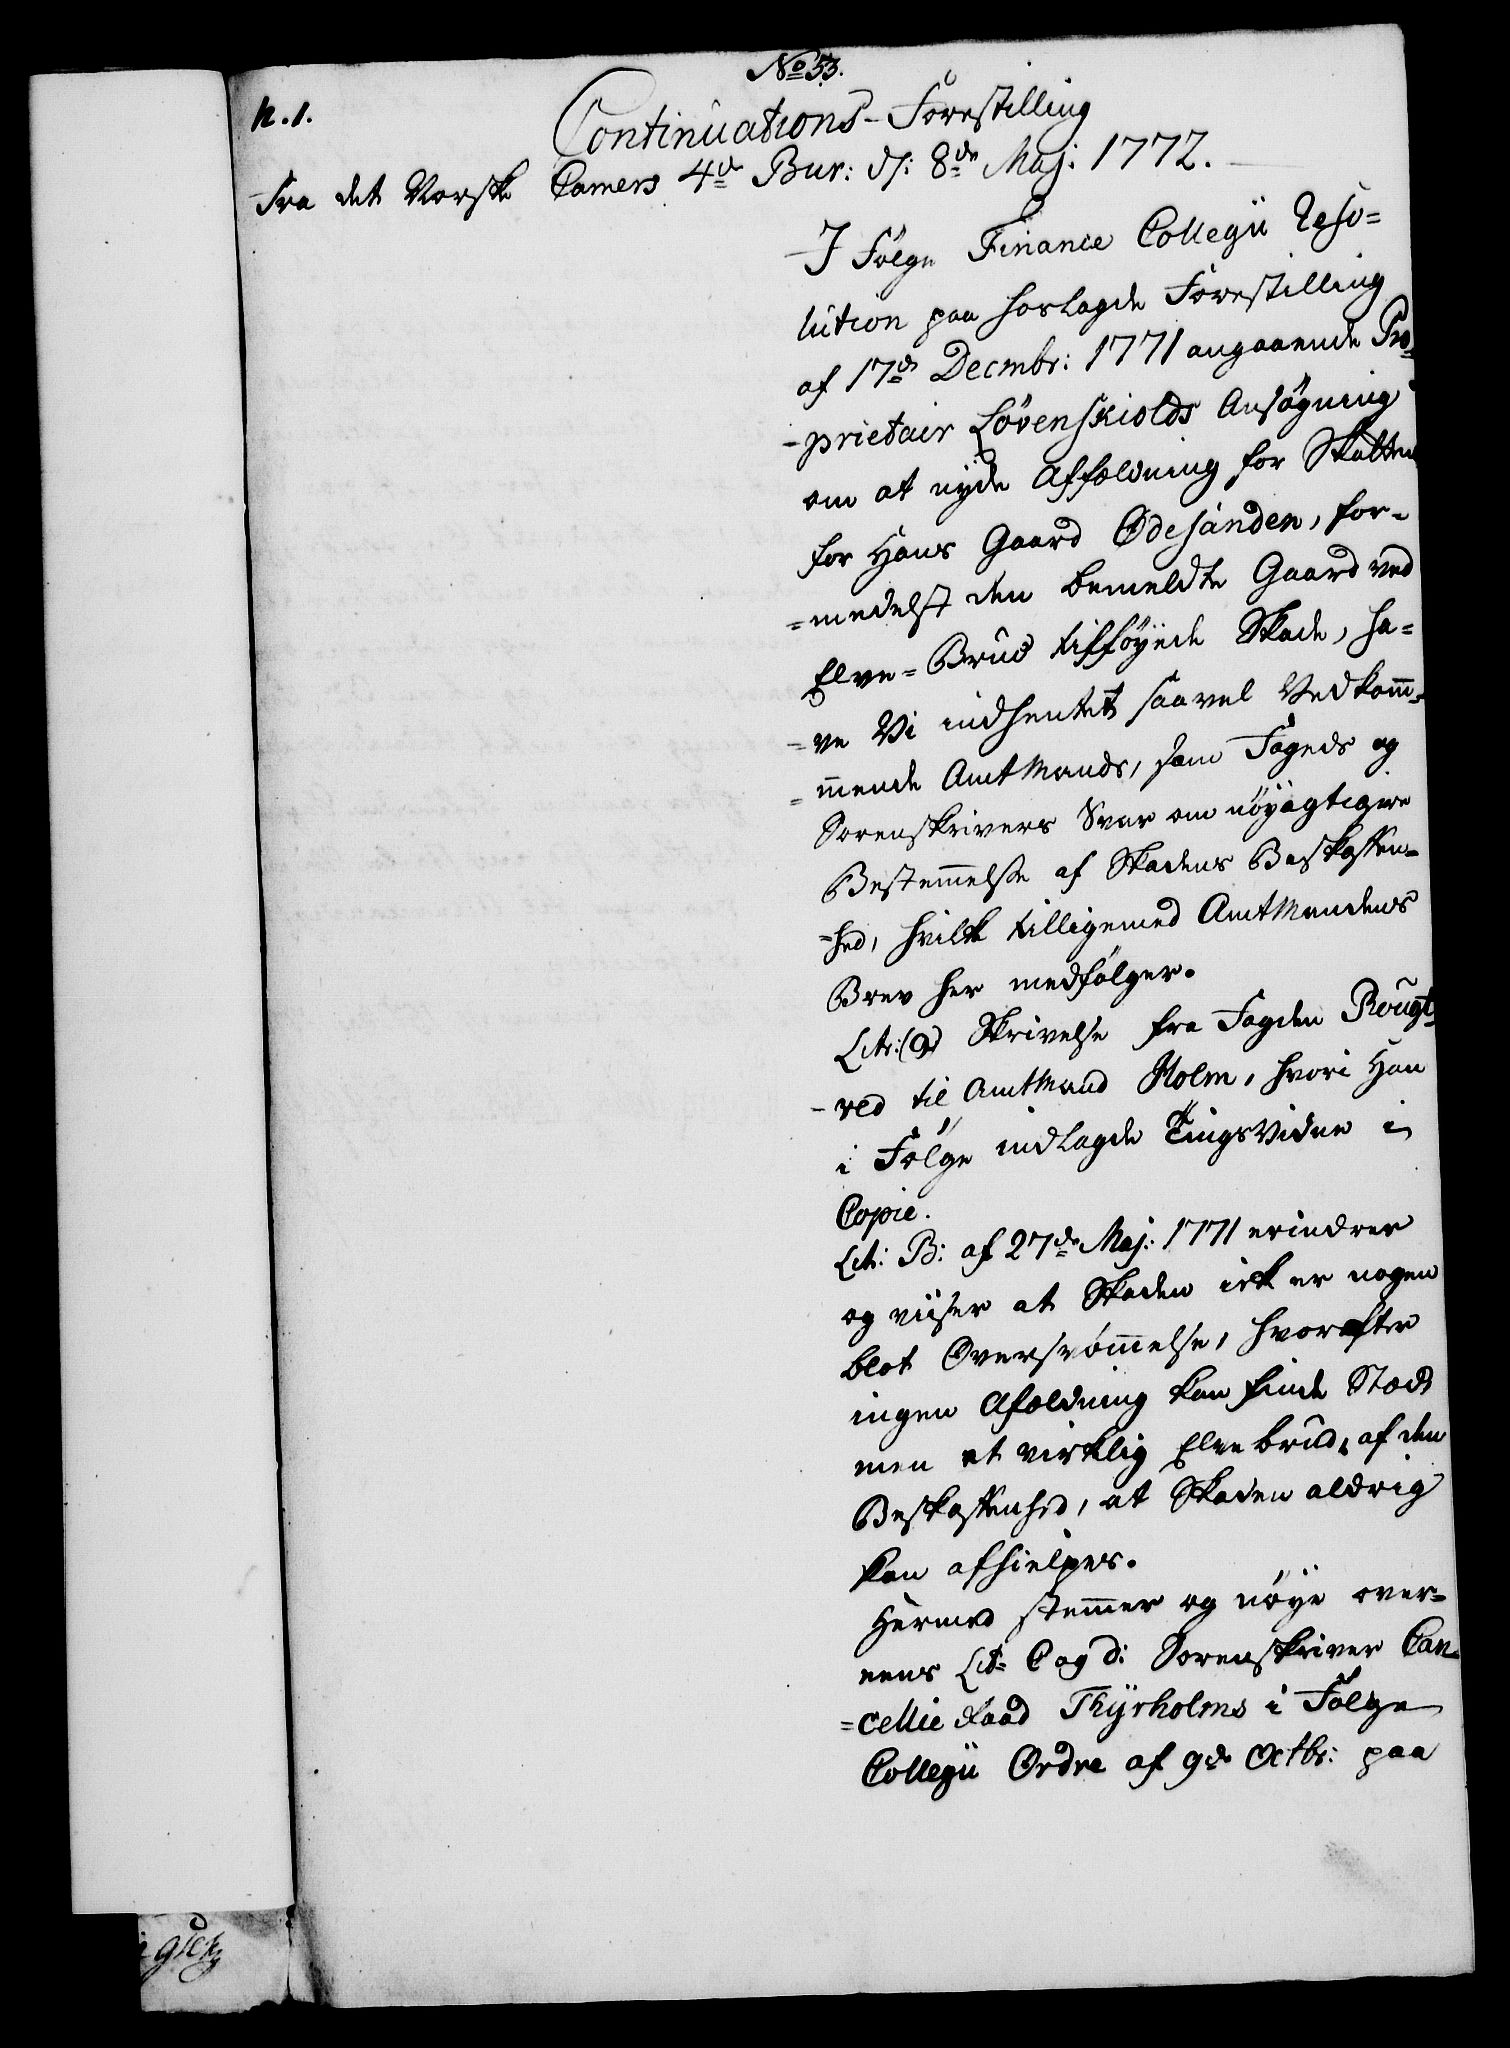 No 53.
n. 1.
Continuations-Forestilling
Fra det Norske Camers 4de Bur: d: 8de Maj: 1772.
I Følge Finance Collegii Reso=
lution paa hoslagde Forestilling
af 17de Decmbr: 1771 angaaende Pro=
-prietair Løvenskiolds Ansøgning
om at nyde Affældning for Skatten
for Hans Gaard Ødesanden, for=
=medelst den bemeldte Gaard ved
Elve=Brud tilføyede Skade, ha=
=ve Vi indhentet saavel Vedkom=
=mende Amtmands, som Fogeds og
Sorenskrivers Svar om nøyagtigere
Bestemmelse af Skadens Beskaffen=
=hed, hvilke tilligemed Amtmandens
Brev her medfølger.
Litr: (a) Skrivelse fra Fogden Rougt=
-ved til Amtmand Holm, hvori Han
i Følge indlagde TingsVidne i
Copie.
Litr: B: af 27de Maj: 1771 erindrer
og viiser at Skaden ikke er nogen
blot Oversvømmelse, hvorefter
ingen Afældning kan finde Stæd
men et virklig Elvebrud, af den
Beskaffenhed, at Skaden aldrig
kan afhielpes.
Hermed stemmer og nøye over=
eens Lit: C og D: Sorenskriver Can=
=cellie Raad Thyrholms i Følge
Collegii Ordre af 9de Octbr: paa